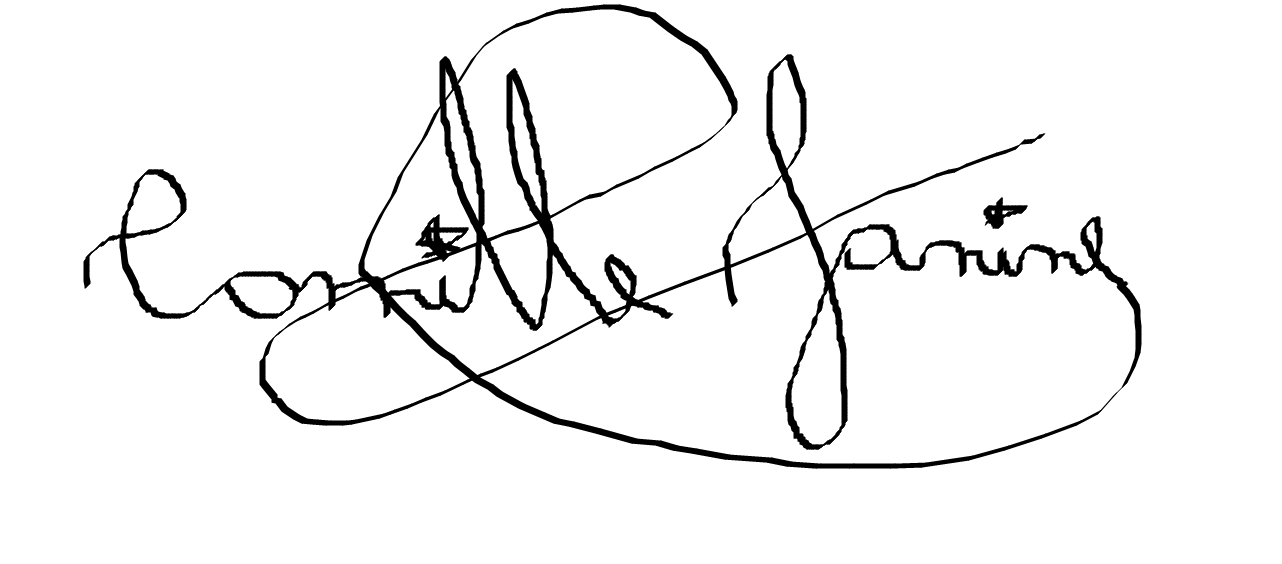 Camille Janine